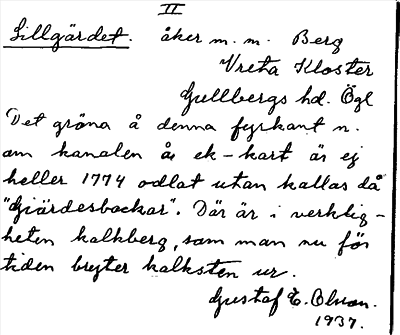 II
Lillgärdet. åker m.m. Berg
Vreta Kloster
Gullbergs hd. Ögl
Det gröna å denna fyrkant n.
om kanalen å ek-kart är ej
heller 1774 odlat utan kallas då
"Gjärdesbackar". Där är i verklig-
heten kalkberg, som man nu för
tiden bryter kalksten ur.
Gustaf E. Olson.
1937.